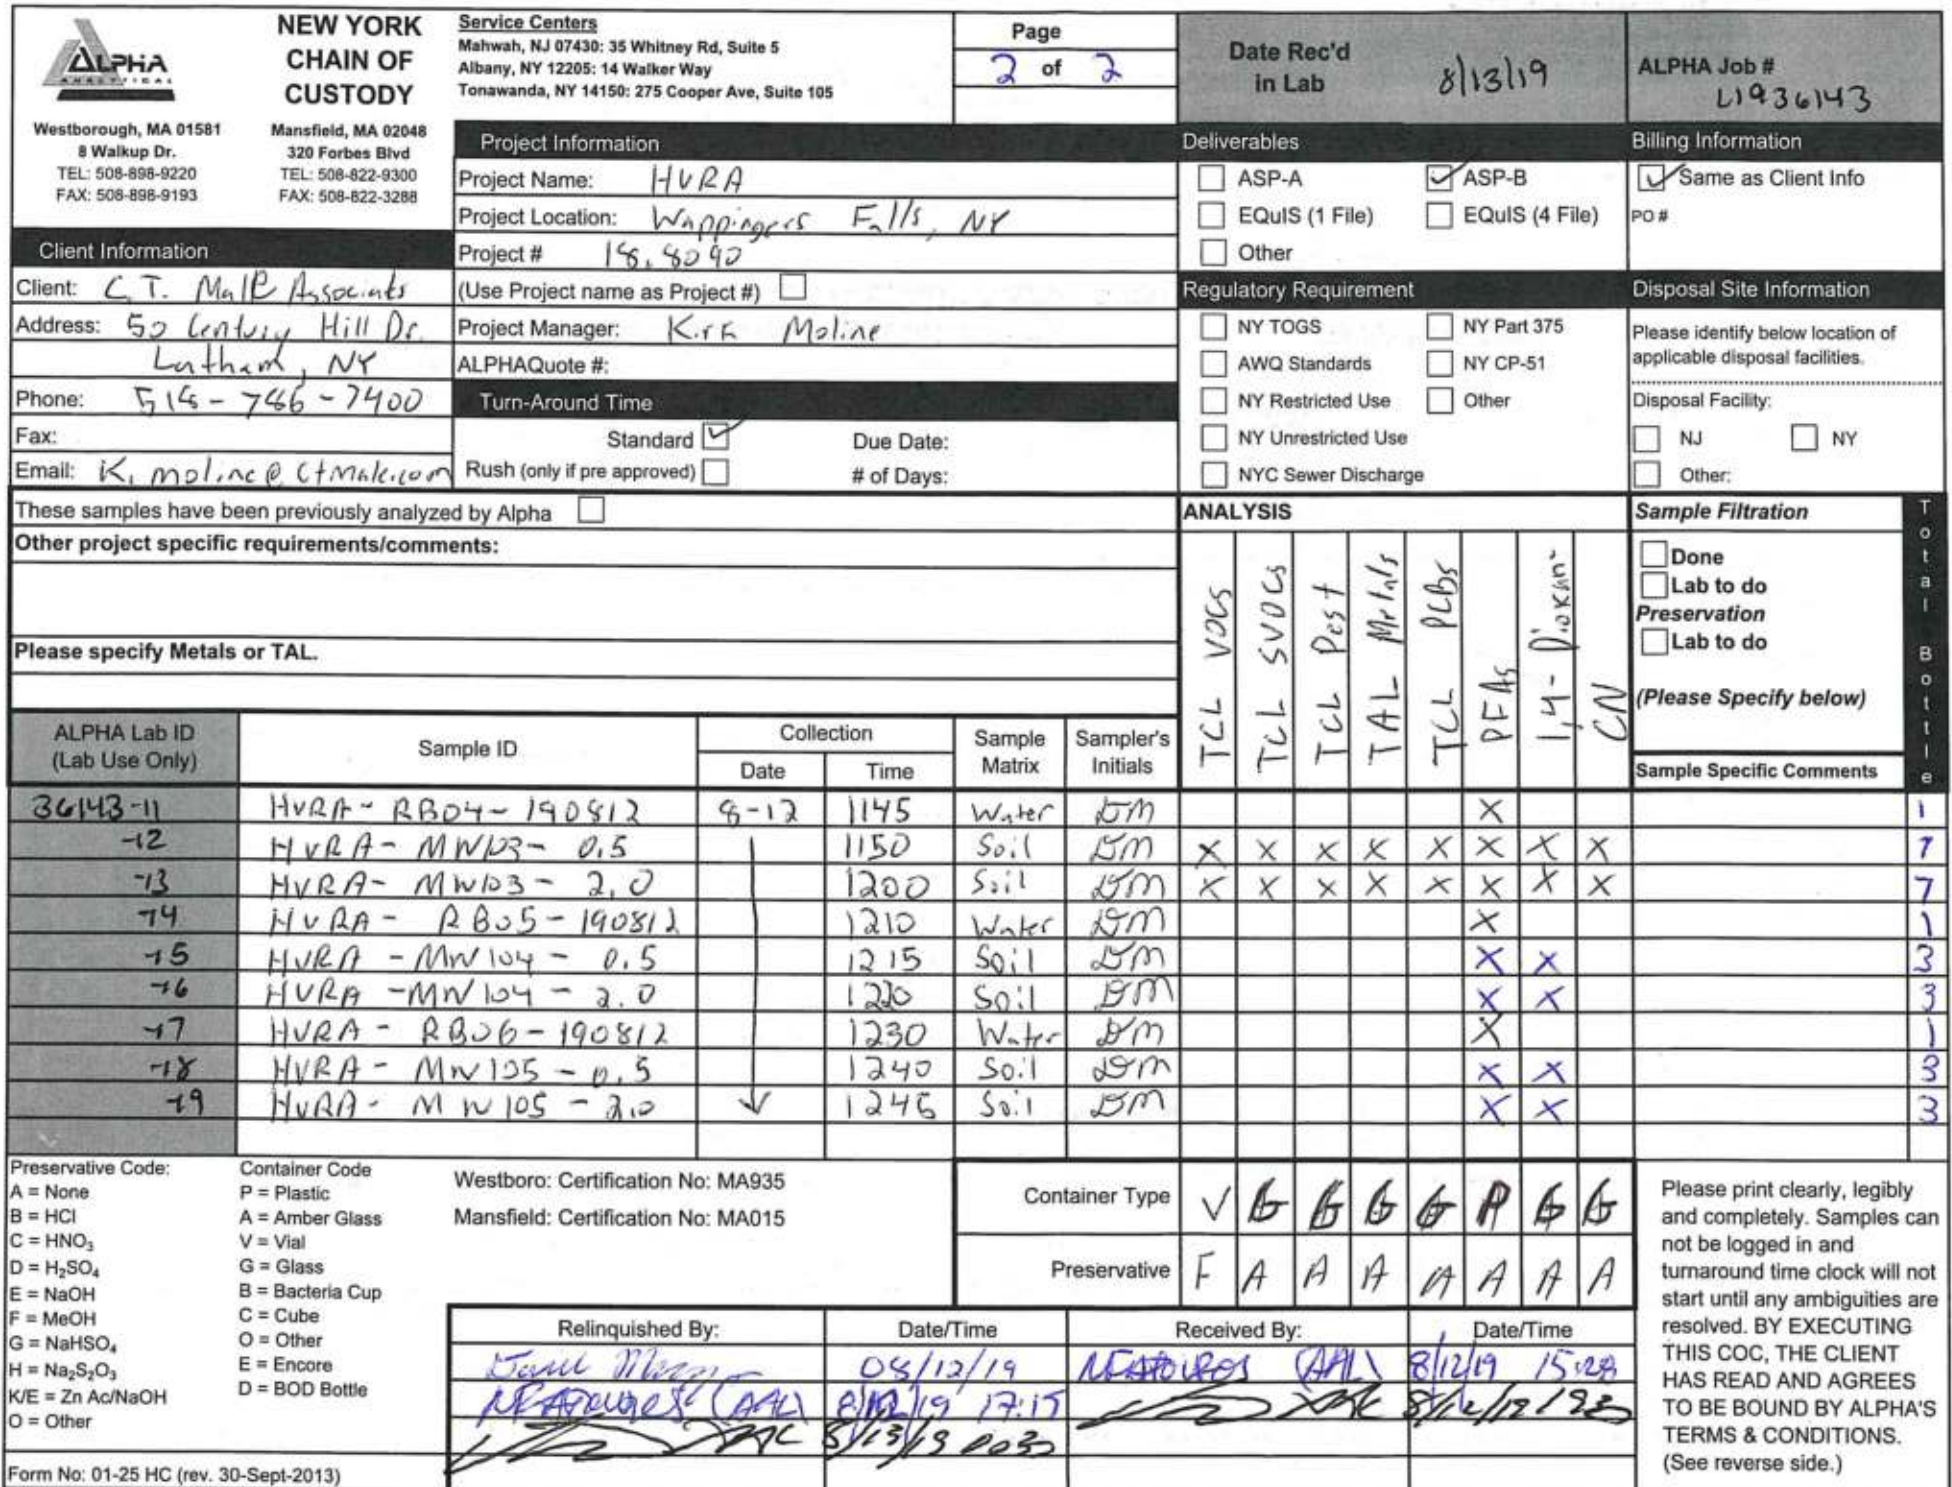 ALPHA
ANALYTICAL
NEW YORK
CHAIN OF
CUSTODY
Westborough, MA 01581
8 Walkup Dr.
TEL: 508-898-9220
FAX: 508-898-9193
Mansfield, MA 02048
320 Forbes Blvd
TEL: 508-822-9300
FAX: 508-822-3288
Service Centers
Mahwah, NJ 07430: 35 Whitney Rd, Suite 5
Albany, NY 12205: 14 Walker Way
Tonawanda, NY 14150: 275 Cooper Ave, Suite 105
Page
2 of 2
Date Rec'd
in Lab
8/13/19
ALPHA Job #
L1936143
Project Information
Project Name: HVRA
Project Location: Wappingers Falls, NY
Project # 18.8090
(Use Project name as Project #)
Project Manager: Kirk Moline
ALPHAQuote #:
Turn-Around Time
Standard
Due Date:
Rush (only if pre approved)
# of Days:
Deliverables
ASP-A ASP-B
EQuIS (1 File) EQuIS (4 File)
Other
Billing Information
Same as Client Info
PO #
Client Information
Client: C.T. Male Associates
Address: 50 Century Hill Dr.
Latham, NY
Phone: 518-786-7400
Fax:
Email: K.moline@ctmale.com
Regulatory Requirement
NY TOGS NY Part 375
AWQ Standards NY CP-51
NY Restricted Use Other
NY Unrestricted Use
NYC Sewer Discharge
Disposal Site Information
Please identify below location of
applicable disposal facilities.
Disposal Facility:
NJ NY
Other:
These samples have been previously analyzed by Alpha
Other project specific requirements/comments:
Please specify Metals or TAL.
ANALYSIS
TCL VOCs
TCL SVOCs
TCL Pest
TAL Metals
TCL PCBs
PFAs
1,4-Dioxane
CN
Sample Filtration
Done
Lab to do
Preservation
Lab to do
(Please Specify below)
Sample Specific Comments
Total Bottle
ALPHA Lab ID
(Lab Use Only)
Sample ID
Collection
Date Time
Sample
Matrix
Sampler's
Initials
36143-11 HVRA-RB04-190812 8-12 1145 Water DM X 1
-12 HVRA-MW103-0.5 1150 Soil DM X X X X X X X X 7
-13 HVRA-MW103-2.0 1200 Soil DM X X X X X X X X 7
-14 HVRA-RB05-190812 1210 Water DM X 1
-15 HVRA-MW104-0.5 1215 Soil DM X X 3
-16 HVRA-MW104-2.0 1220 Soil DM X X 3
-17 HVRA-RB06-190812 1230 Water DM X 1
-18 HVRA-MW105-0.5 1240 Soil DM X X 3
-19 HVRA-MW105-2.0 1245 Soil DM X X 3
Preservative Code:
A = None
B = HCl
C = HNO₃
D = H₂SO₄
E = NaOH
F = MeOH
G = NaHSO₄
H = Na₂S₂O₃
K/E = Zn Ac/NaOH
O = Other
Container Code
P = Plastic
A = Amber Glass
V = Vial
G = Glass
B = Bacteria Cup
C = Cube
O = Other
E = Encore
D = BOD Bottle
Westboro: Certification No: MA935
Mansfield: Certification No: MA015
Container Type V G G G G P G G
Preservative F A A A A A A A
Relinquished By: Date/Time Received By: Date/Time
08/12/19 (AAL) 8/12/19 15:28
(AAL) 8/12/19 17:15
8/13/19
Please print clearly, legibly
and completely. Samples can
not be logged in and
turnaround time clock will not
start until any ambiguities are
resolved. BY EXECUTING
THIS COC, THE CLIENT
HAS READ AND AGREES
TO BE BOUND BY ALPHA'S
TERMS & CONDITIONS.
(See reverse side.)
Form No: 01-25 HC (rev. 30-Sept-2013)